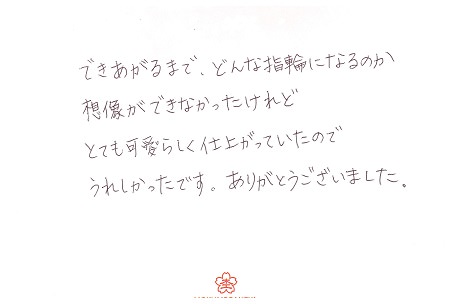 できあがるまで、どんな指輪になるのか
想像ができなかったけれど
とても可愛らしく仕上がっていたので
うれしかったです。ありがとうございました。